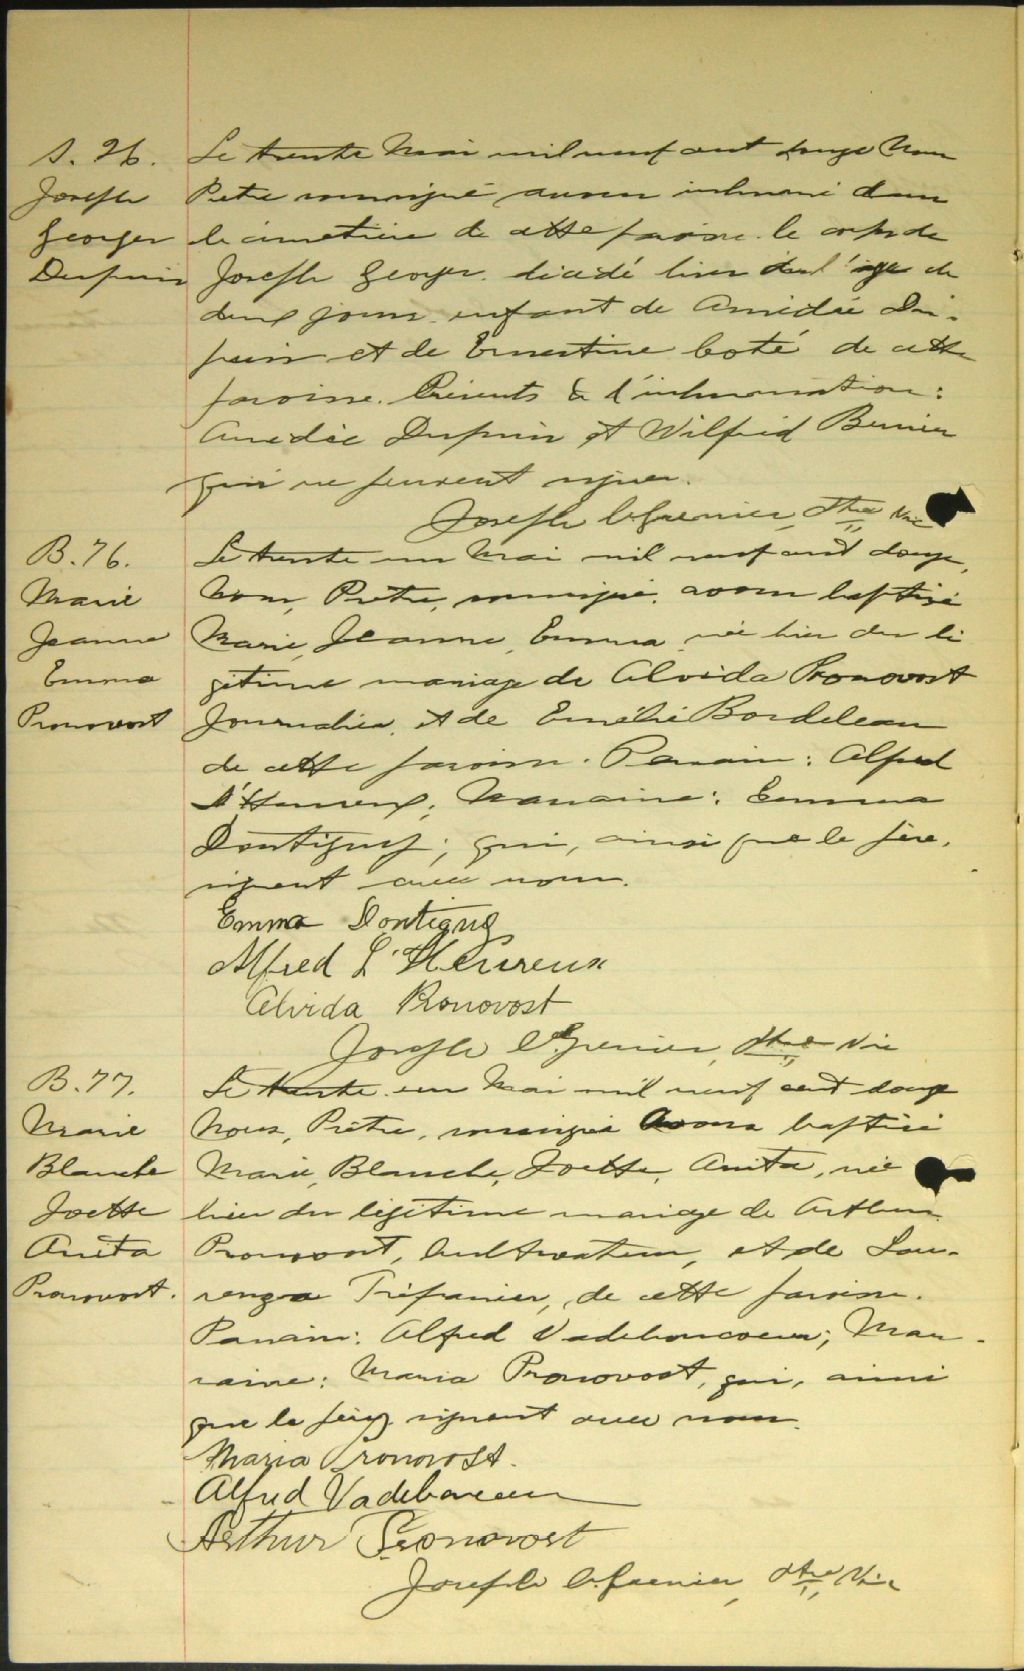 S. 26.
Joseph
Georges
Dupuis
Le trente Mai mil neuf cent douze Nous
Prêtre soussigné avons inhumé dans
le cimetière de cette paroisse le corps de
Joseph Georges décédé hier dans l'âge de
deux jours enfant de Amédée Du-
puis et de Ernestine Coté de cette
paroisse. Présents à l'inhumation:
Amédée Dupuis et Wilfrid Bernier
qui ne peuvent signer.
Joseph Ptre Vic
B. 76.
Marie
Jeanne
Emma
Pronovost
Le trente un Mai mil neuf cent douze,
Nous, Prêtre, soussigné, avons baptisé
Marie, Jeanne, Emma, née hier du lé
gitime mariage de Alvida Pronovost
Journalier, et de Emélie Bordeleau
de cette paroisse. Parrain: Alfred
L'Heureux; Marraine: Emma
Dontigny; qui, ainsi que le père,
signent avec nous.
Emma Dontigny
Alfred L'Heureux
Alvida Pronovost
Joseph Ptre Vic
B. 77.
Marie
Blanche
Joette
Anita
Pronovost.
Le trente un Mai mil neuf cent douze
Nous, Prêtre, soussigné avons baptisé
Marie, Blanche, Joette, Anita, née
hier du légitime mariage de Arthur
Pronovost, Cultivateur, et de Lau-
renza Trépanier, de cette paroisse.
Parrain: Alfred Vadeboncoeur; Mar-
raine: Maria Pronovost, qui, ainsi
que le père, signent avec nous.
Maria Pronovost.
Alfred Vadeboncoeur
Arthur Pronovost
Joseph Ptre Vic